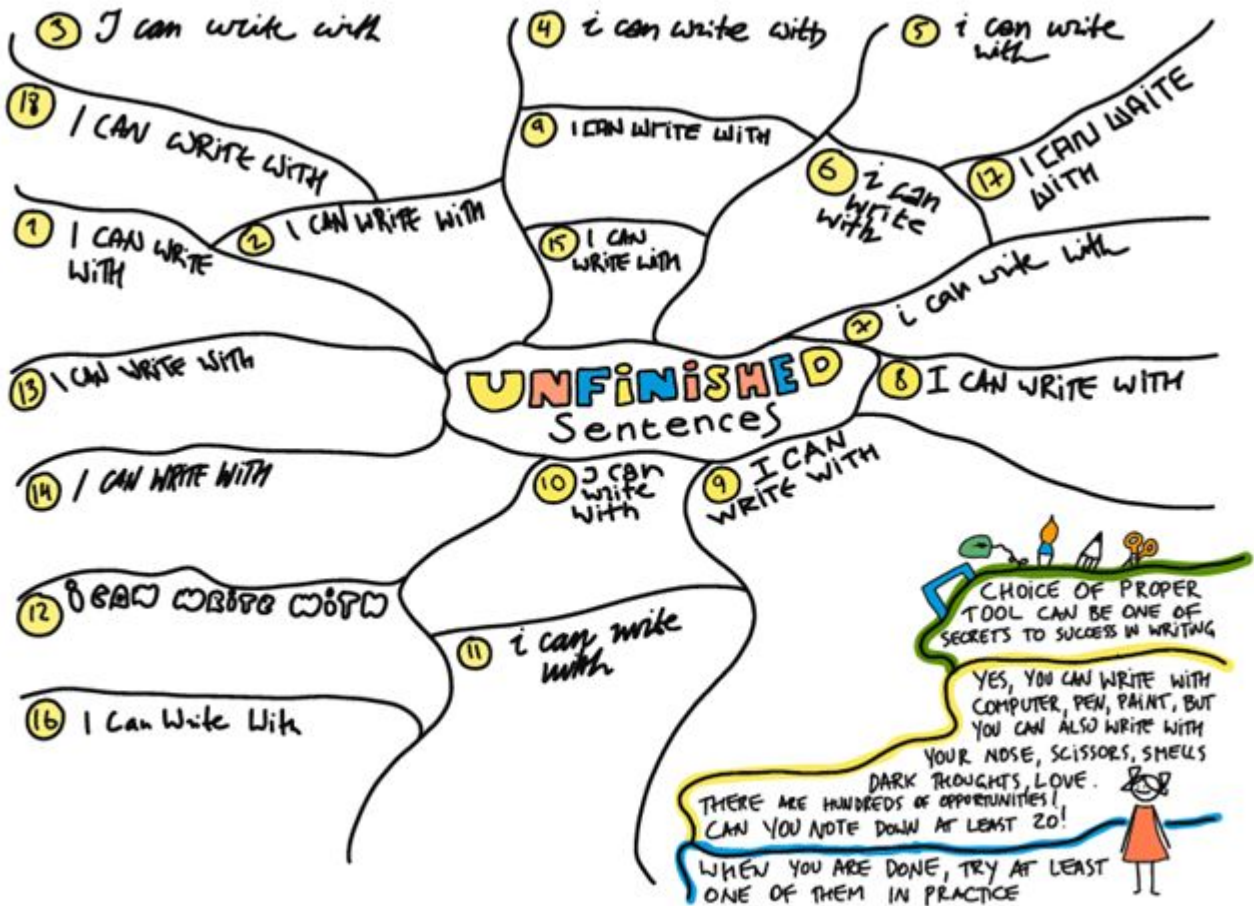 3 I can write with
4 i can write with
5 i can write
with
18 I CAN WRITE WITH
9 I CAN WRITE WITH
6 i can
write
with
17 I CAN WRITE
WITH
1 I CAN WRITE
WITH
2 I CAN WRITE WITH
15 I CAN
WRITE WITH
7 i can write with
13 I CAN WRITE WITH
UNFINISHED
Sentences
8 I CAN WRITE WITH
14 I CAN WRITE WITH
10 I can
write
with
9 I CAN
WRITE WITH
12 I CAN WRITE WITH
11 i can write
with
16 I Can Write With
CHOICE OF PROPER
TOOL CAN BE ONE OF
SECRETS TO SUCCESS IN WRITING
YES, YOU CAN WRITE WITH
COMPUTER, PEN, PAINT, BUT
YOU CAN ALSO WRITE WITH
YOUR NOSE, SCISSORS, SMELLS
DARK THOUGHTS, LOVE.
THERE ARE HUNDREDS OF OPPORTUNITIES!
CAN YOU NOTE DOWN AT LEAST 20!
WHEN YOU ARE DONE, TRY AT LEAST
ONE OF THEM IN PRACTICE